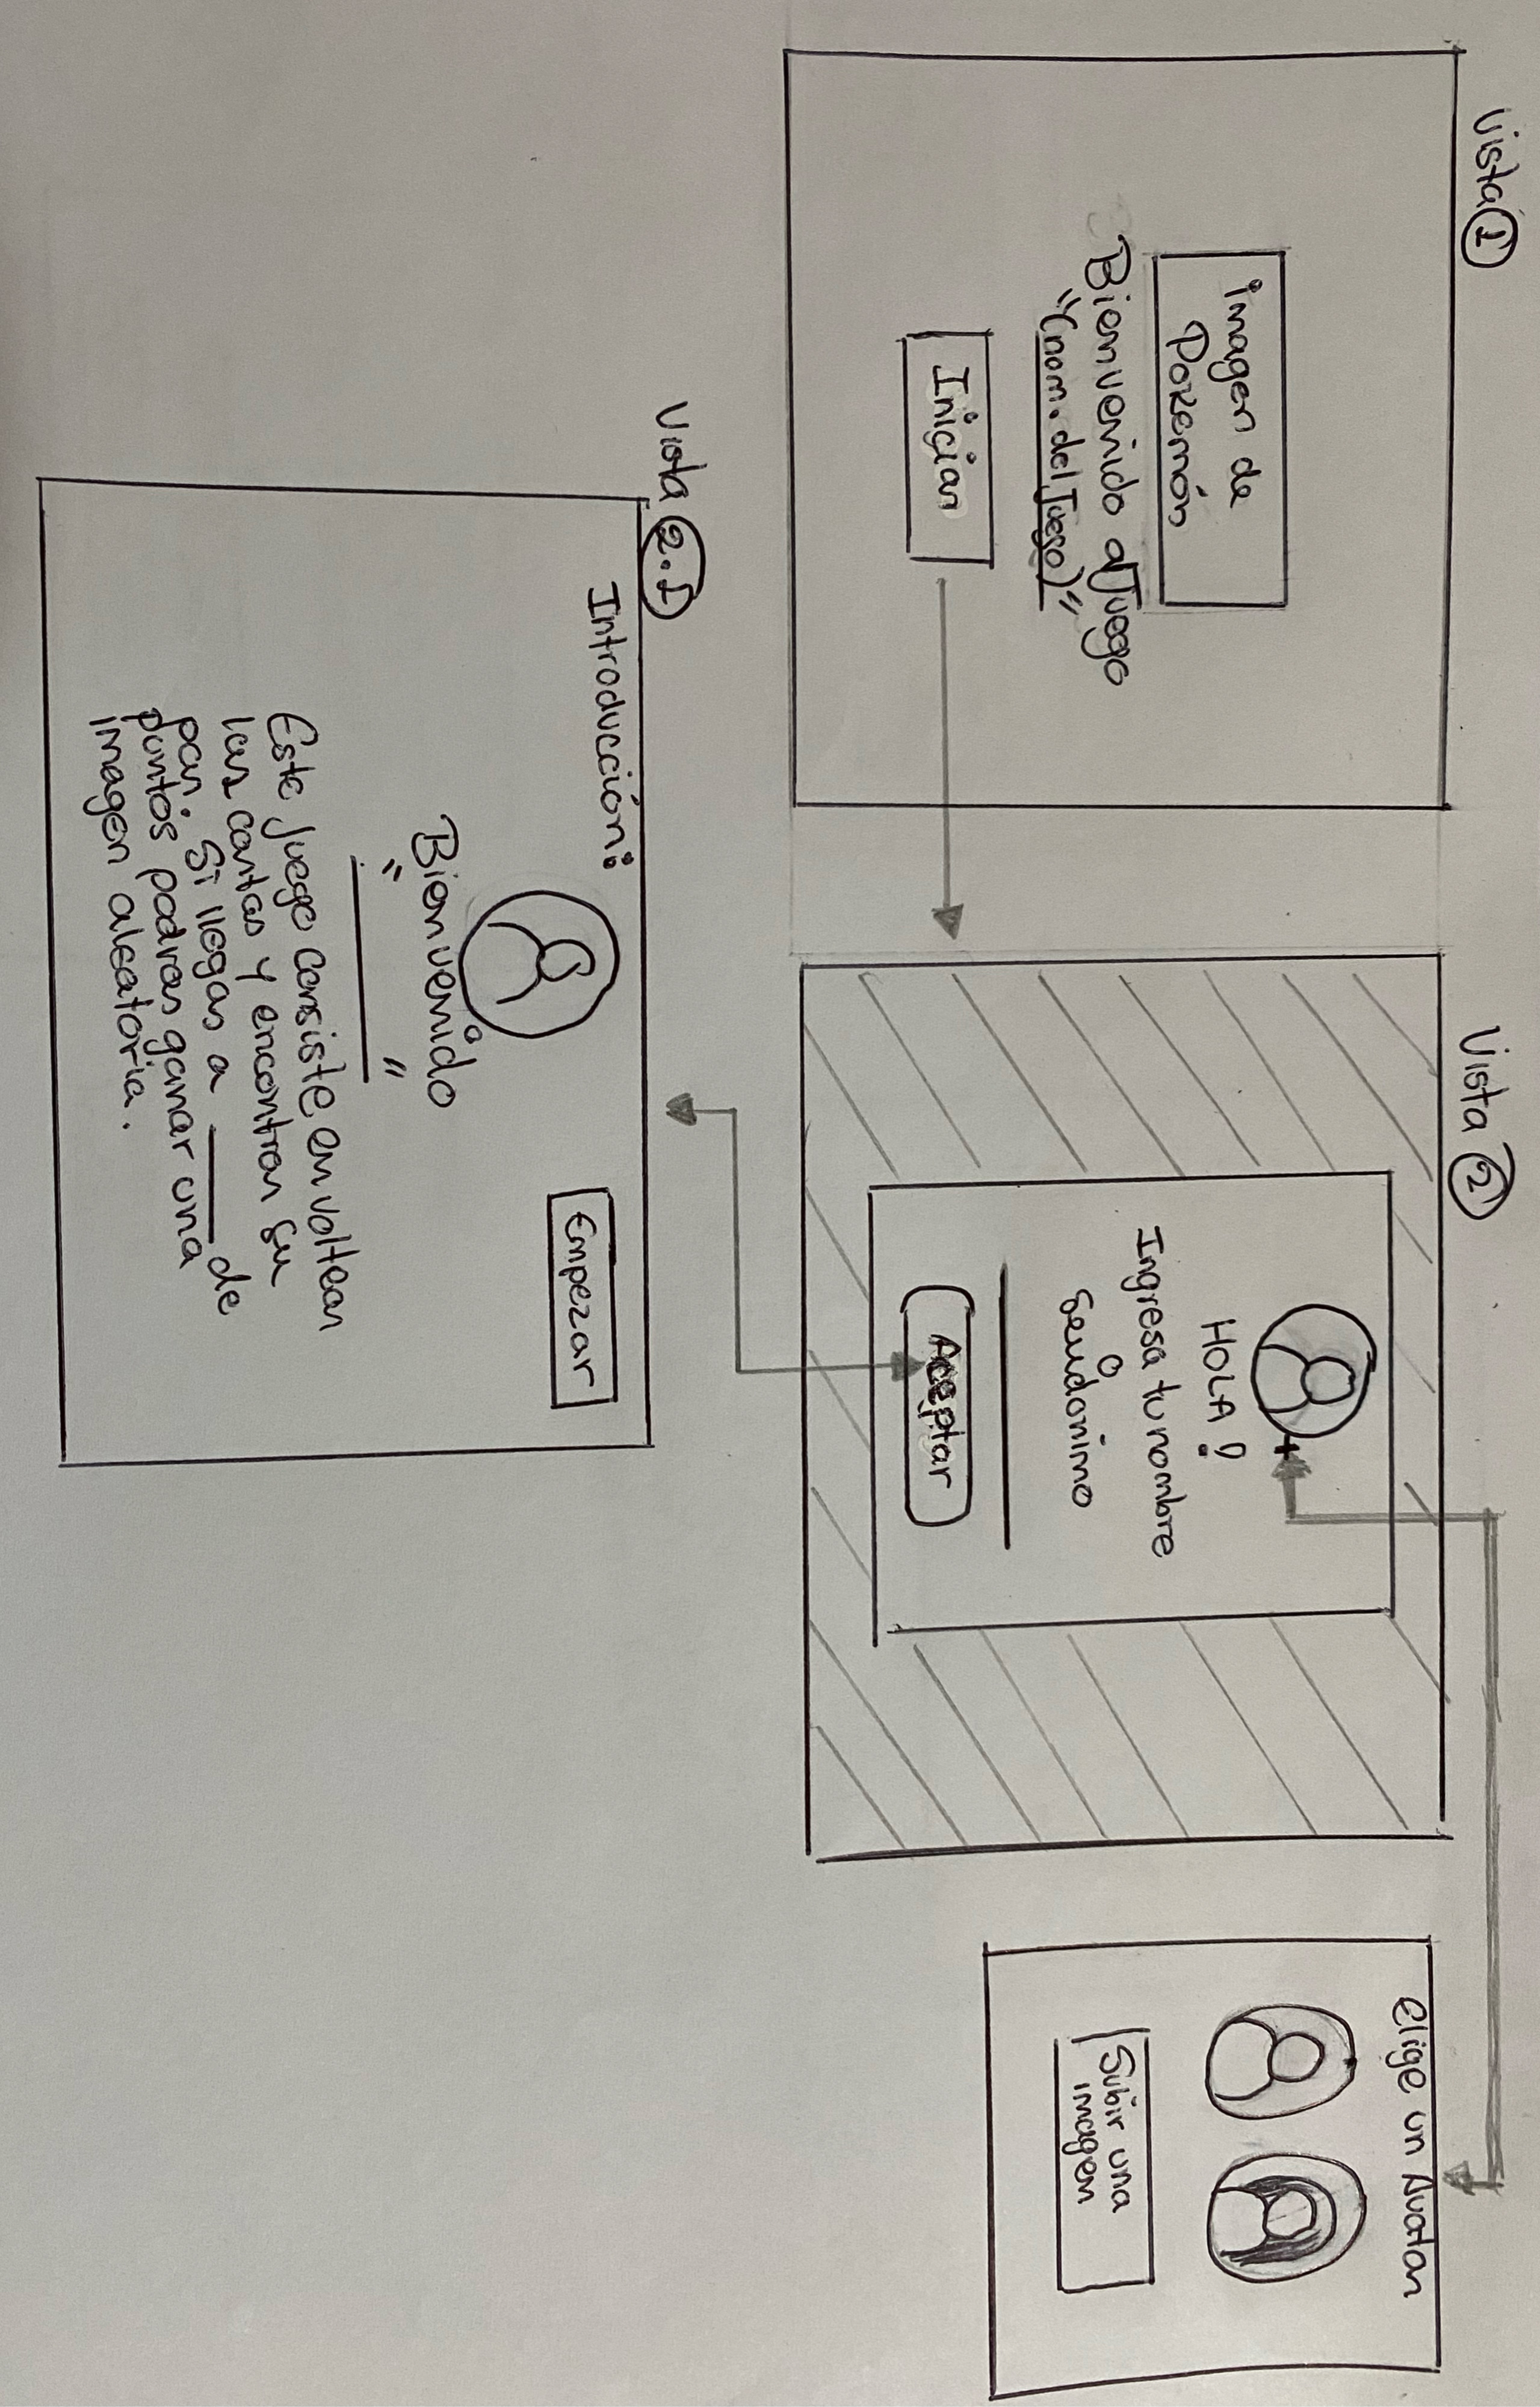 Vista 1
imagen de
Pokemón
Bienvenido al Juego
"(nom. del Juego)"
Iniciar
Vista 2
HOLA !
Ingresa tu nombre
o
Seudonimo
Aceptar
Elige un Avatar
Subir una
imagen
Vista 2.1
Introducción:
Empezar
Bienvenido
" "
Este juego consiste en voltear
las cartas y encontrar su
par. Si llegas a ____ de
puntos podras ganar una
imagen aleatoria.